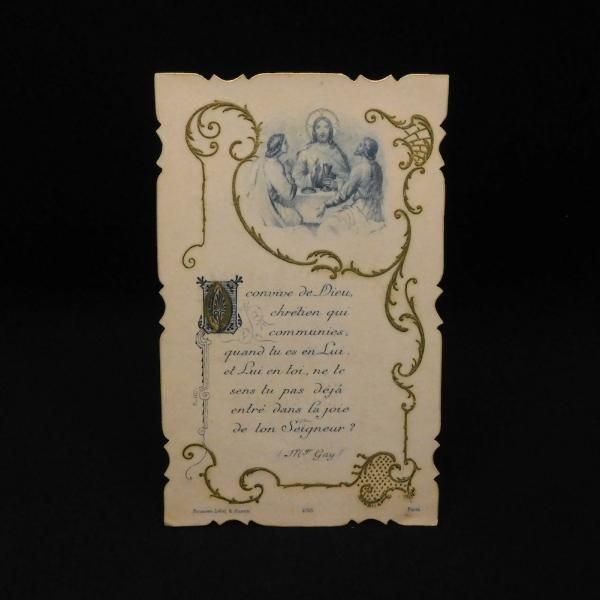 O convive de Dieu,
chrétien qui
communies,
quand tu es en Lui.
et Lui en toi, ne te
sens tu pas déjà
entré dans la joie
de ton Seigneur?
(Mgr Gay)
Paris